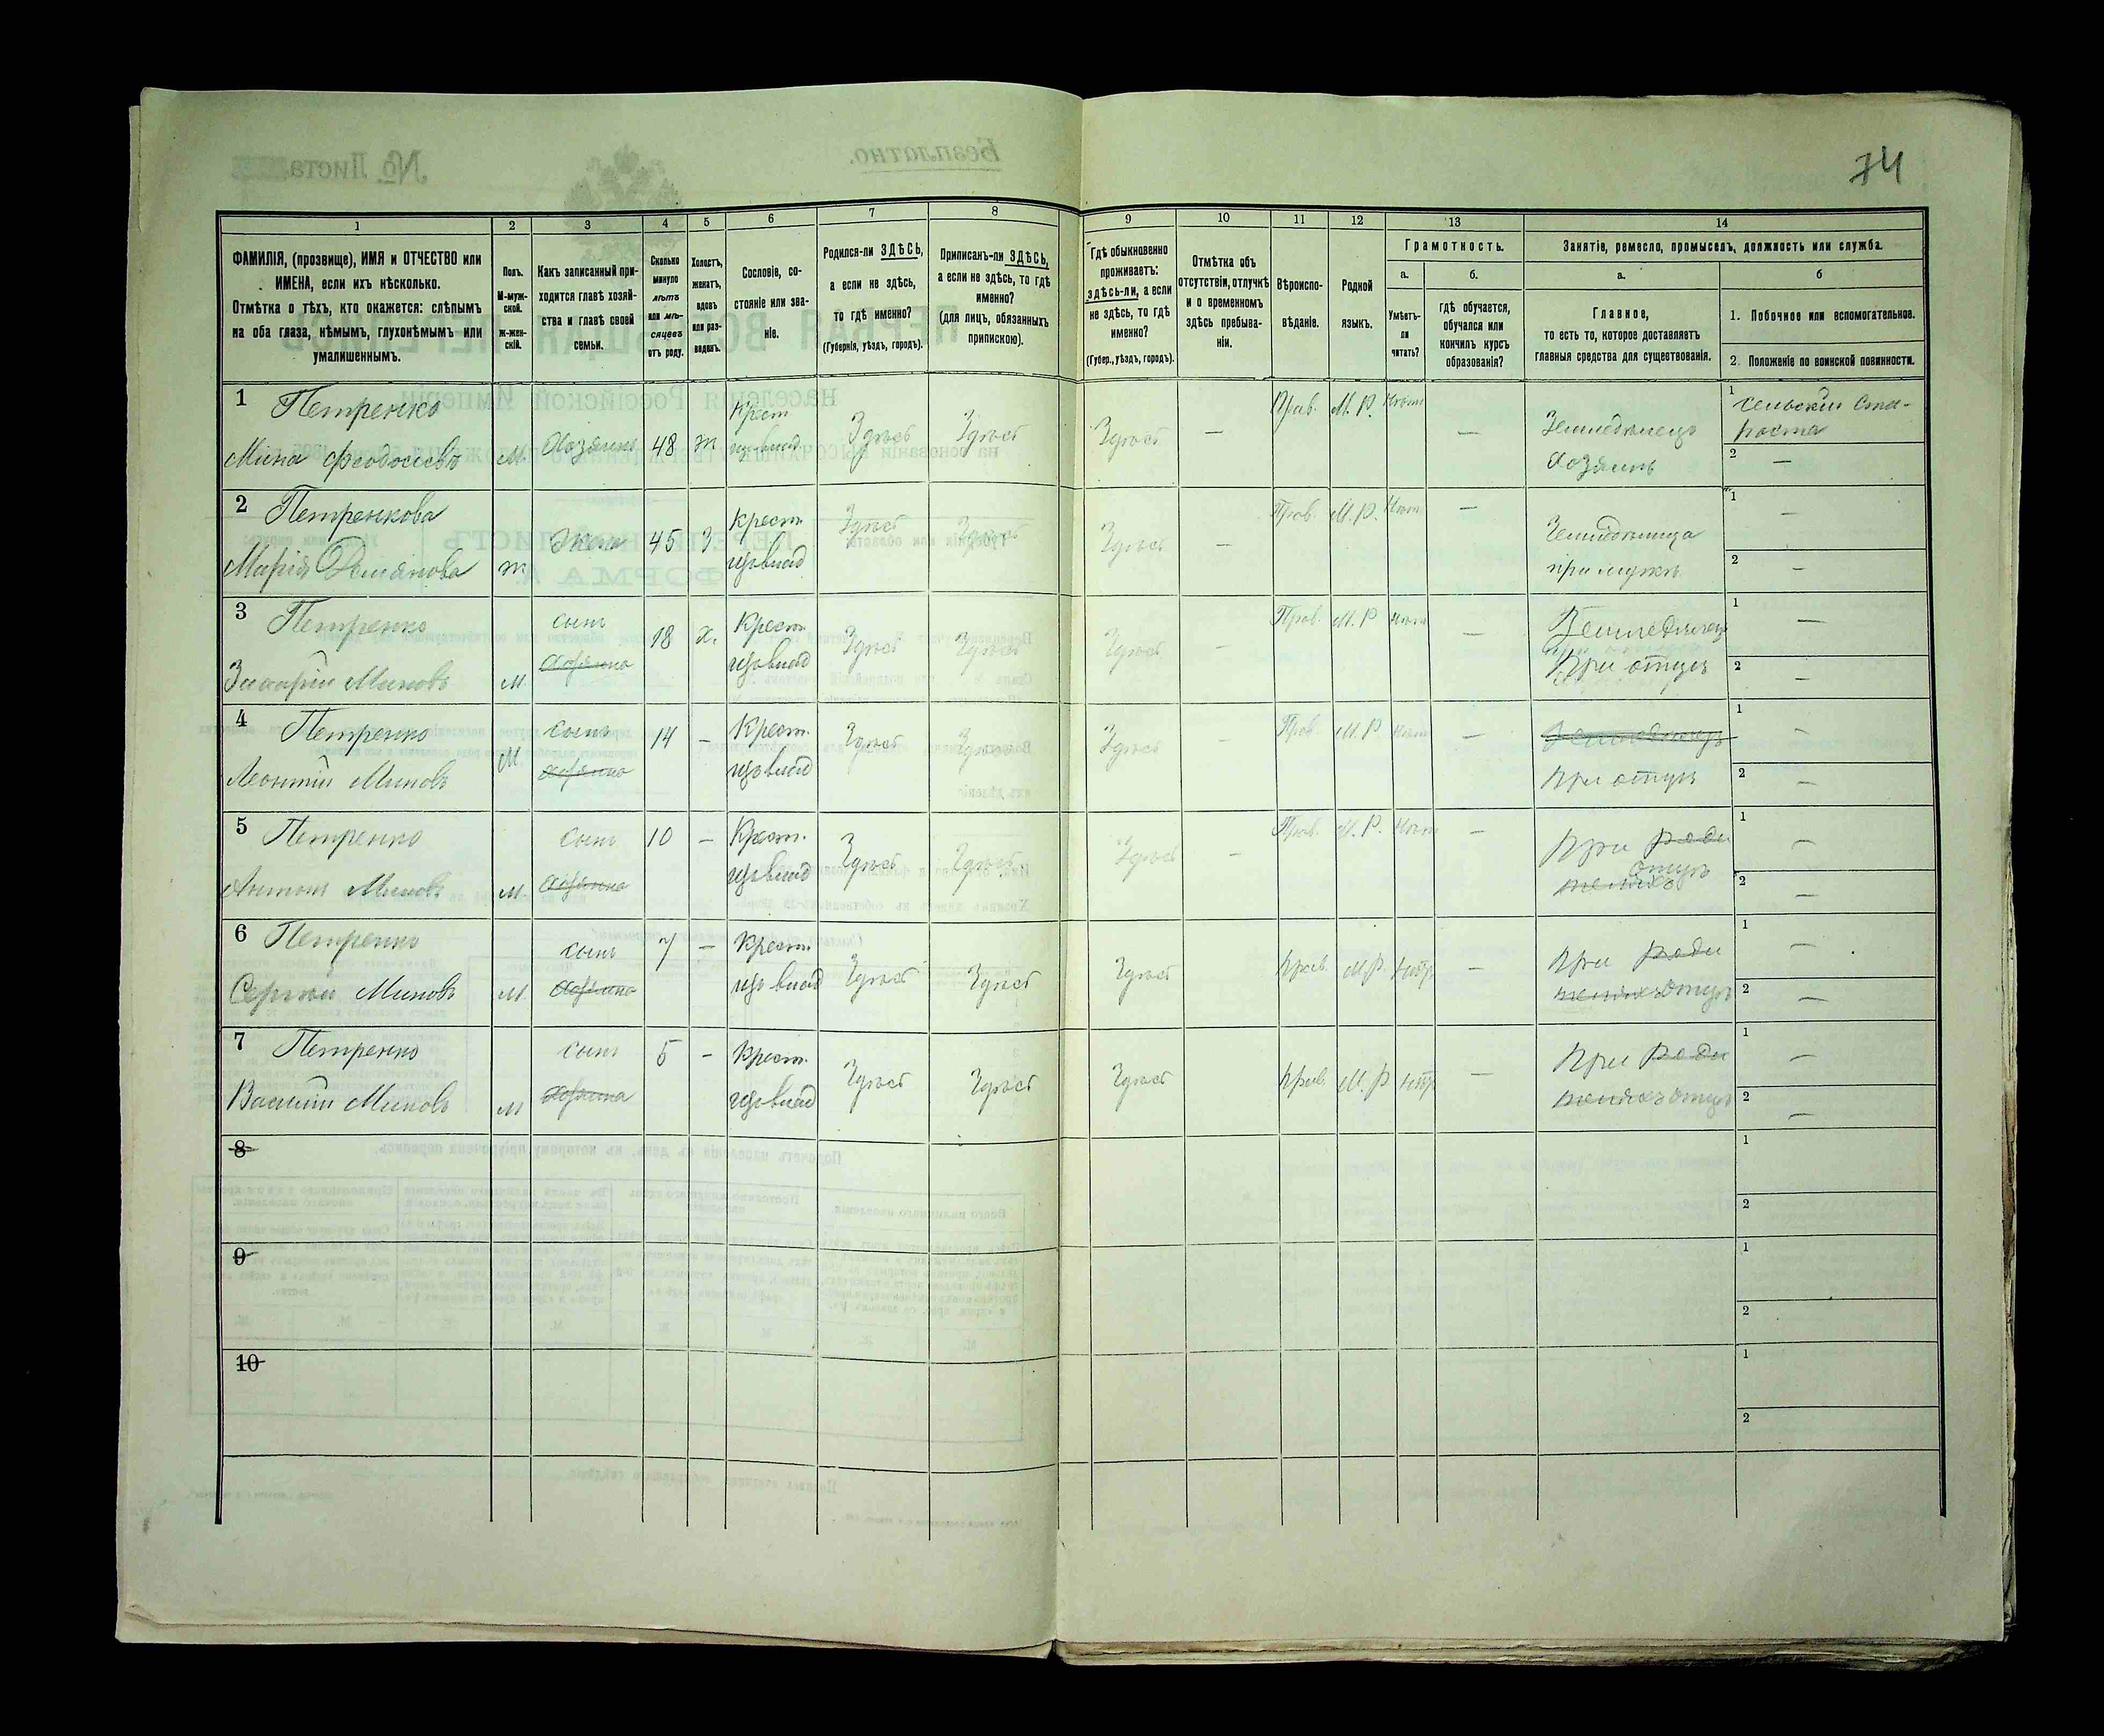 74
1
2
3
4
5
6
7
8
9
10
11
12
13
14
ФАМИЛІЯ, (прозвище), ИМЯ и ОТЧЕСТВО или
ИМЕНА, если ихъ нѣсколько.
Отмѣтка о тѣхъ, кто окажется: слѣпымъ
на оба глаза, нѣмымъ, глухонѣмымъ или
умалишеннымъ.
Полъ.
М-муж-
ской.
Ж-жен-
скій.
Какъ записанный при-
ходится главѣ хозяй-
ства и главѣ своей
семьи.
Сколько
минуло
лѣтъ
или мѣ-
сяцевъ
отъ роду.
Холостъ,
женатъ,
вдовъ
или раз-
веденъ.
Сословіе, со-
стояніе или зва-
ніе.
Родился-ли ЗДѢСЬ,
а если не здѣсь,
то гдѣ именно?
(Губернія, уѣздъ, городъ).
Приписанъ-ли ЗДѢСЬ,
а если не здѣсь, то гдѣ
именно?
(для лицъ, обязанныхъ
припискою).
Гдѣ обыкновенно
проживаетъ:
здѣсь-ли, а если
не здѣсь, то гдѣ
именно?
(Губер., уѣздъ, городъ).
Отмѣтка объ
отсутствіи, отлучкѣ
и о временномъ
здѣсь пребыва-
ніи.
Вѣроиспо-
вѣданіе.
Родной
языкъ.
Грамотность.
а.
Умѣетъ-
ли
читать?
б.
гдѣ обучается,
обучался или
кончилъ курсъ
образованія?
Занятіе, ремесло, промыселъ, должность или служба.
а.
Главное,
то есть то, которое доставляетъ
главныя средства для существованія.
б
1. Побочное или вспомогательное.
2. Положеніе по воинской повинности.
1 Петренко
Мина Феодосіевъ
М.
Хозяинъ
48
ж
Крест.
Здѣсь
Здѣсь
Здѣсь
—
Прав.
М. Р.
Нѣтъ
—
Земледѣлецъ
хозяинъ
1 сельский ста-
роста
2 —
2 Петренкова
Марія Демянова
ж
Жена
45
З
Крест.
Здѣсь
Здѣсь
Здѣсь
—
Прав.
М. Р.
Нѣтъ
—
Земледѣлица
при мужѣ
1 —
2 —
3 Петренко
Захарій Миновъ
М
сынъ
хозяина
18
х.
Крест.
Здѣсь
Здѣсь
Здѣсь
—
Прав.
М. Р
Нѣтъ
—
Земледѣлецъ
При отцѣ
1 —
2 —
4 Петренко
Леонтій Миновъ
М
сынъ
хозяина
14
—
Крест.
Здѣсь
Здѣсь
Здѣсь
—
Прав.
М. Р
Нѣтъ
—
Земледѣлецъ
при отцѣ
1 —
2 —
5 Петренко
Антонъ Миновъ
М
сынъ
хозяина
10
—
Крест.
Здѣсь
Здѣсь
Здѣсь
—
Прав.
М. Р.
Нѣтъ
—
При роди
отцѣ
теляхъ
1 —
2 —
6 Петренко
Сергѣй Миновъ
М.
сынъ
хозяина
7
—
Крест.
Здѣсь
Здѣсь
Здѣсь
Прав.
М. Р.
—
при роди
теляхъ отцѣ
1 —
2 —
7 Петренко
Василій Миновъ
М
сынъ
хозяина
5
—
Крест.
Здѣсь
Здѣсь
Здѣсь
Прав.
М. Р
—
при роди
теляхъ отцѣ
1 —
2 —
8
1
2
9
1
2
10
1
2